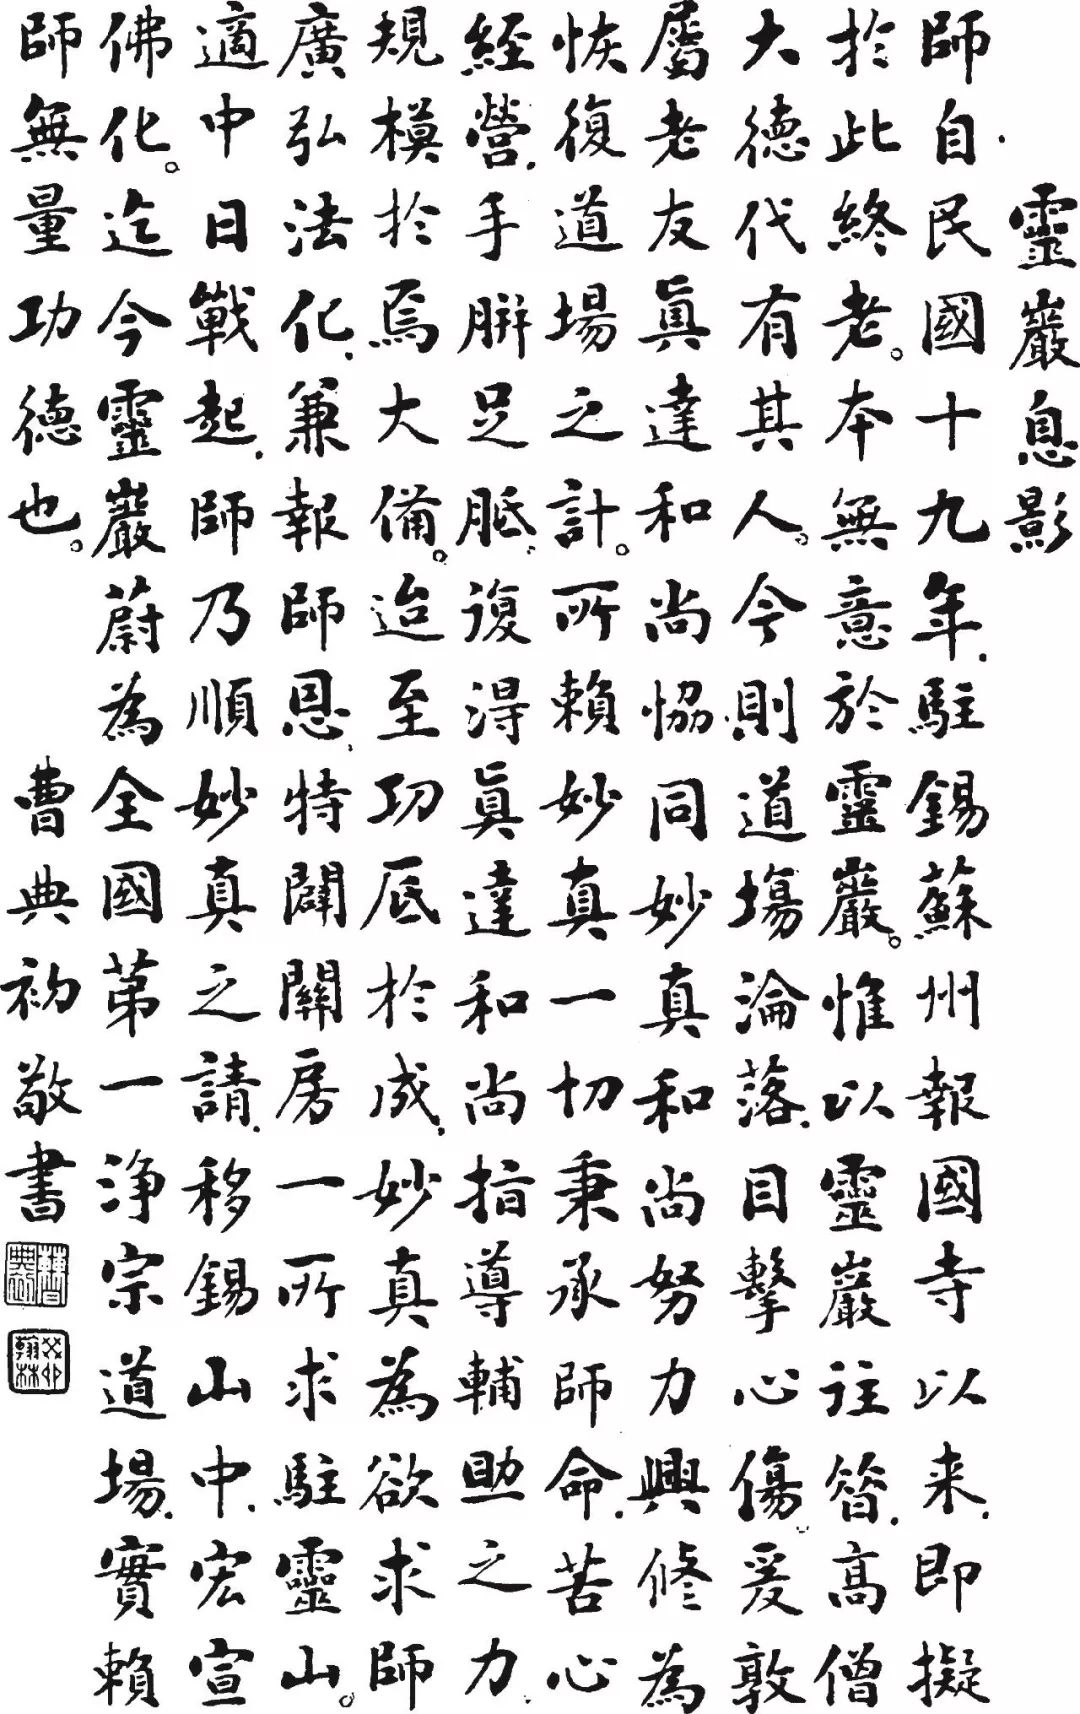 靈巖息影
師自民國十九年，駐錫蘇州報國寺以来，即擬
扵此終老。本無意於靈巖。惟以靈巖往昝，高僧
大德代有其人。今則道塲淪落，目擊心傷。爰敦
屬老友真達和尚協同妙真和尚努力興修為
恢復道場之計。所賴妙真一切秉承師命，苦心
經營，手胼足胝，複得真達和尚指導輔助之力，
規模扵焉大備。迨至功底扵成，妙真為欲求師
廣弘法化，兼報師恩，特闢關房一所求駐靈山。
適中日戰起，師乃順妙真之請，移錫山中，宏宣
佛化。迄今靈巖蔚為全國第一淨宗道場，實賴
師無量功德也。
曹典初敬書